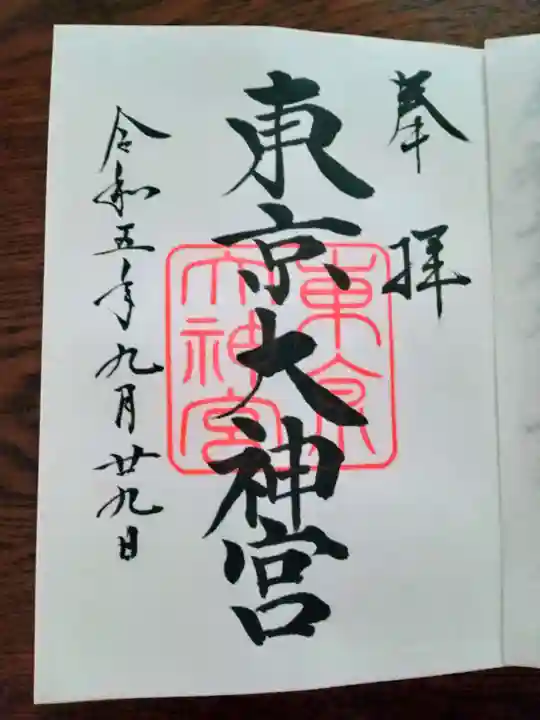 奉拝
東京大神宮
東京
大神宮
令和五年九月廿九日